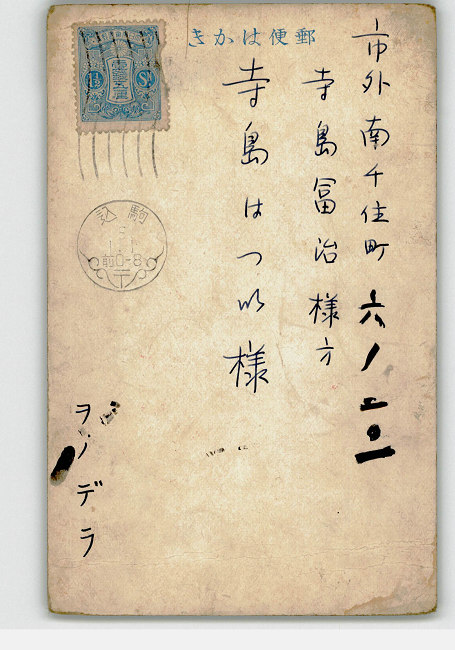 きかはば便郵
市外南千住町六ノ二〇一
寺島冨治様方
寺島はつ以様
駒込
前0-8
ヲノデラ